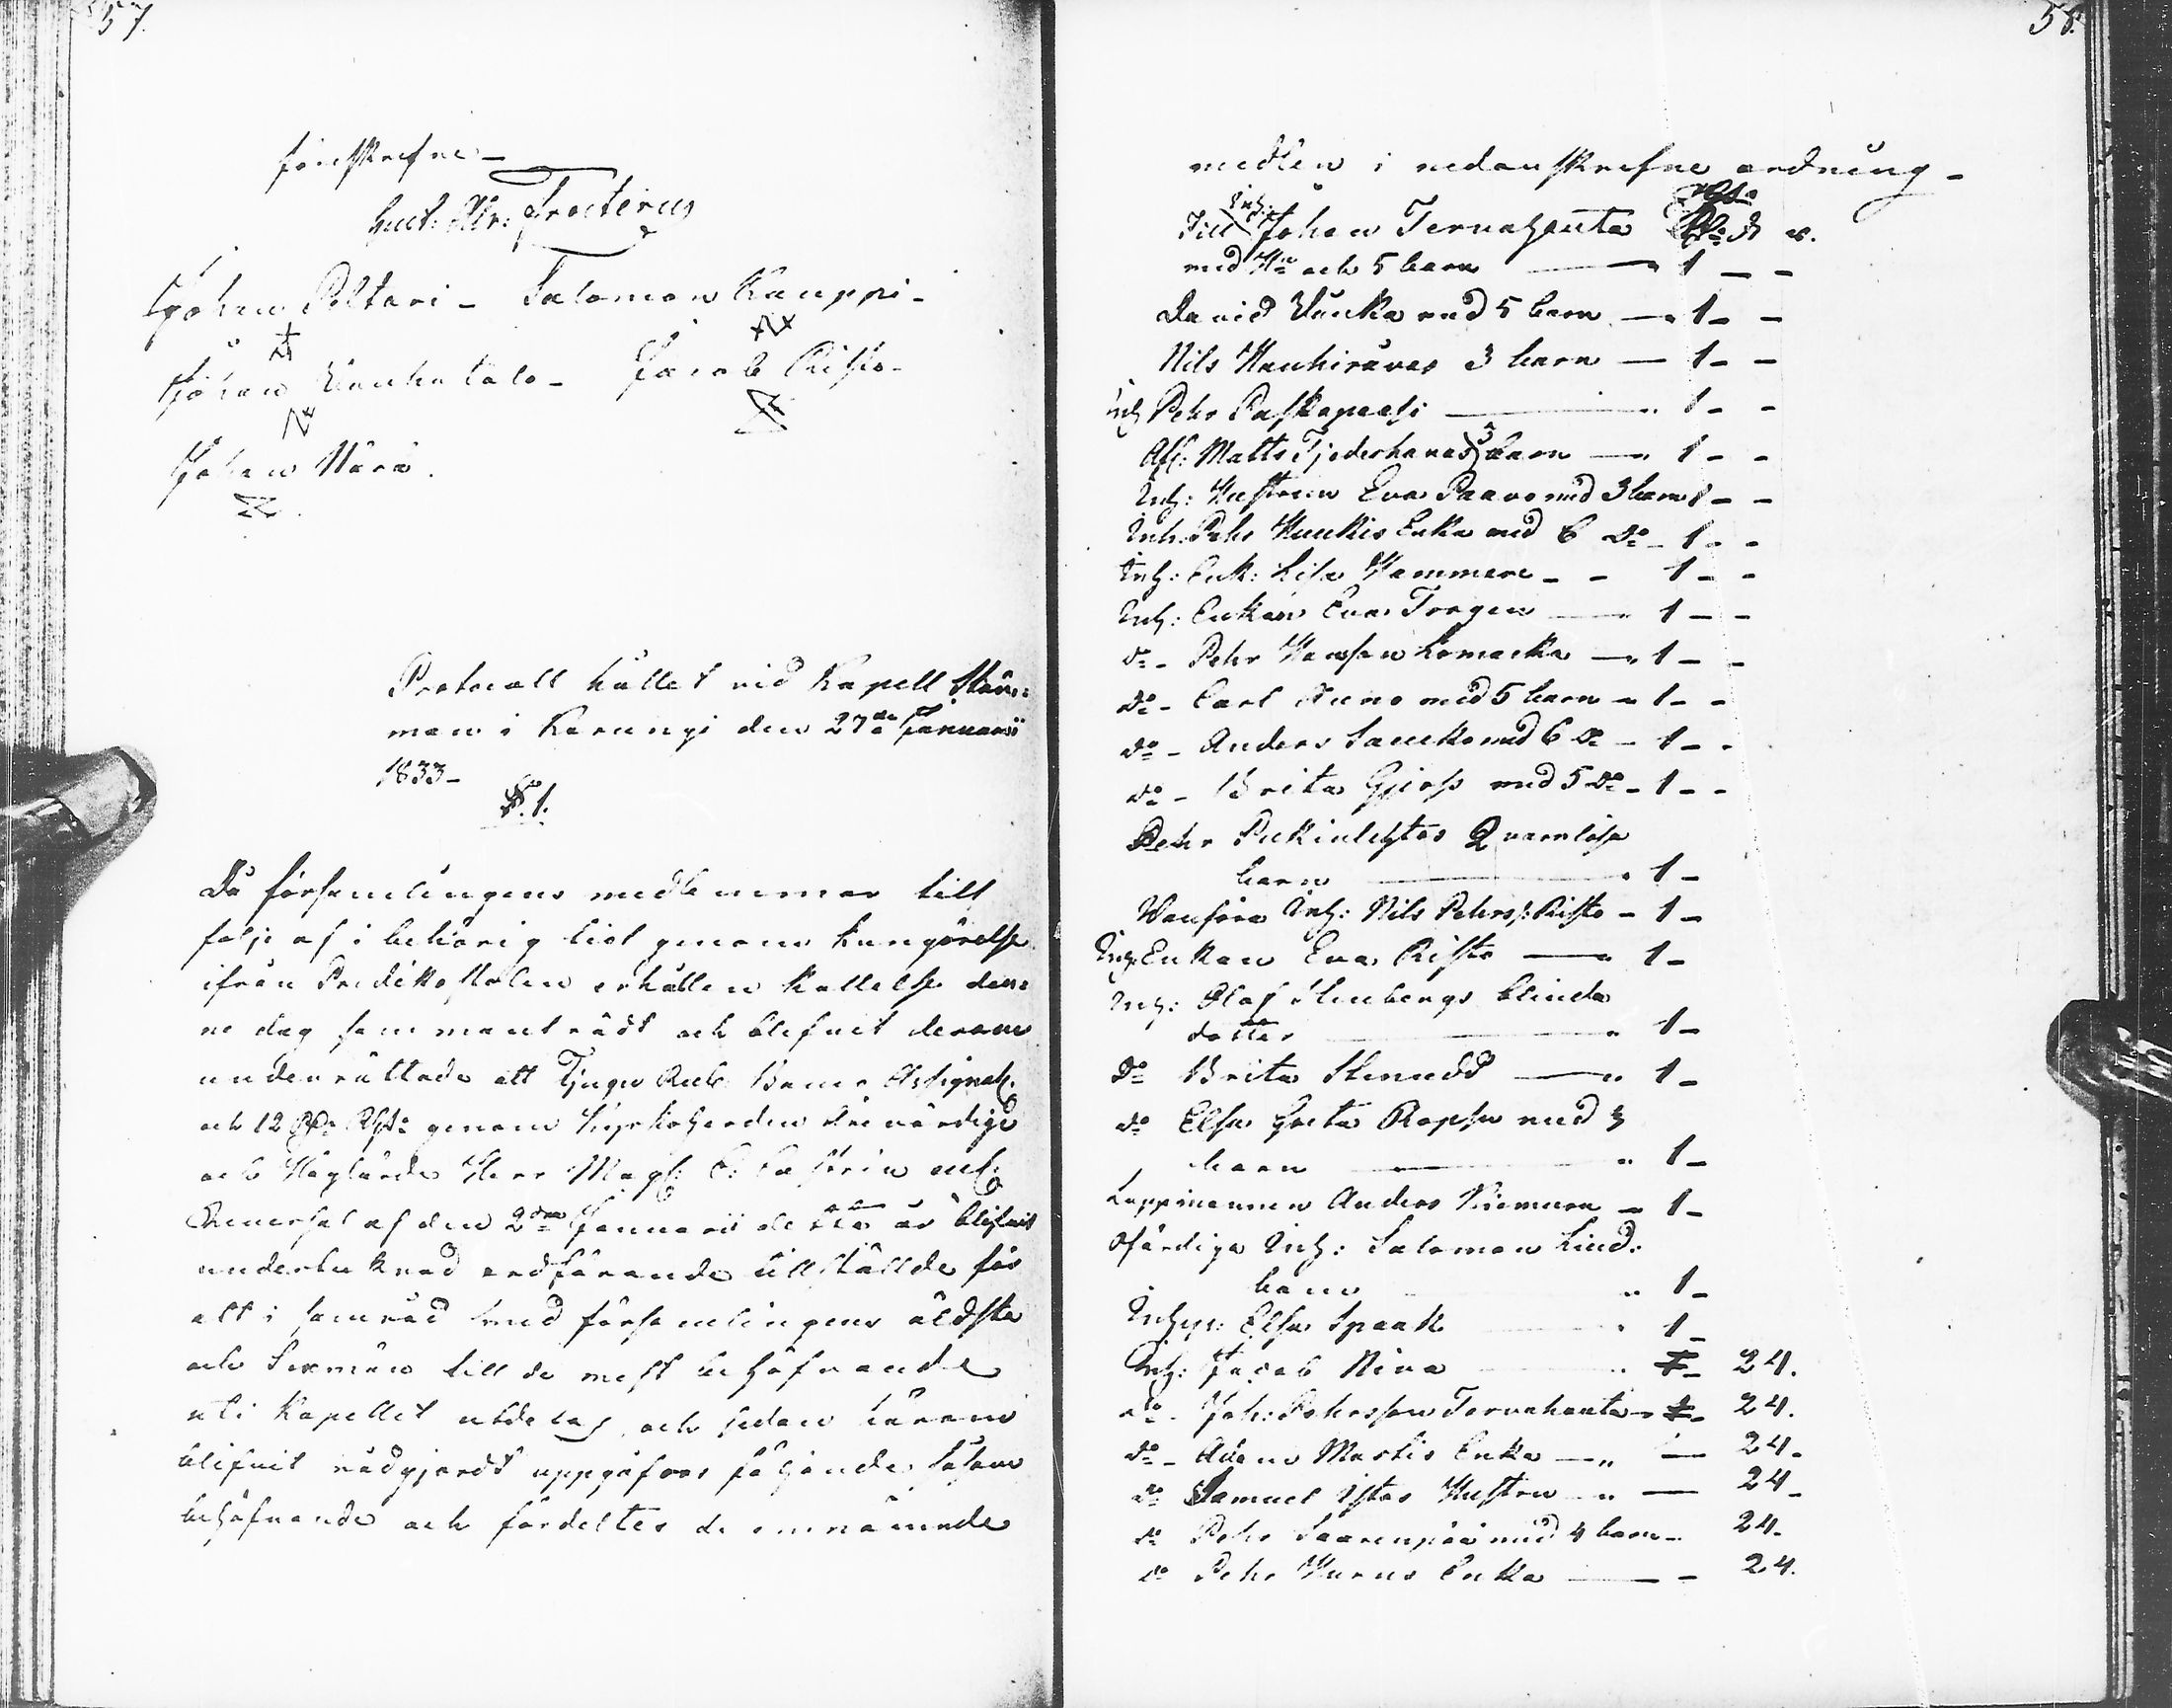 57.
föreskrefne –
Gust: Abr: Frosterus
Johan Poltari – Salomon Kauppi –
Johan Vanhatalo – Jacob Risto –
Johan Närä.
Protocoll hållet vid Kapell Stäm=
man i Karungi den 27de Januarii
1833 –
§. 1.
Då församlingens medlemmar till
följe af i behörig tid genom kungörelse
ifrån Predikostolen erhållen kallelse den=
na dag sammanträdt och blifvit derom
underrättade att Tjugu Rub: Banco Assignat:
och 12 Rd: Rgs: genom Kyrkoherden Ärevördige
och Höglärde Herr Mag: E: Castrén enl:
Reversal af den 2dra Januarii detta år blifvit
undertecknad ordförande tillställde för
att i samråd med församlingens äldsta
och Sexmän till de mest behöfvande
uti Kapellet utdelas, och sedan härom
blifvit rådgjordt uppgåfvos följande såsom
behöfvande och fördeltes de omnämnde
58.
medlen i nedanskrefne ordning –
Till Inh: Johan Tervahauta
med Hu och 5 barn — 1 – –
David Kuuka med 5 barn — 1 – –
Nils Haukiravas 3 barn — 1 – –
Inh Pehr Paskapeesi — 1 – –
Afl: Matts Tjederhanas 3 barn — 1 – –
Inh: Hustrun Eva Paavo med 3 barn 1 – –
Inh. Pehr Kuukis Enka med 6 Do – 1 – –
Inh: Enk: Lisa Hammare – – 1 – –
Inh: Enkan Eva Torgen — 1 – –
Do – Pehr Hansson Lomakka — 1 – –
Do – Carl Auno med 5 barn – 1 – –
Do – Anders Laukko med 6 Do – 1 – –
Do – Brita Gjers med 5 Do – 1 – –
Pehr Pekinlehtos Qvarnlösa
barn — 1 –
Vanföra Inh: Nils Pehrss: Risto – 1 –
Inh: Enkan Eva Risto — 1 –
Inh: Olof Stenbergs blinda
dotter — 1 –
Do Brita Stenudd — 1 –
Do Elsa Greta Ropsa med 3
barn — 1 –
Lappmannen Anders Niemura – 1 –
Ofärdiga Inh: Salomon Lind:
bom — 1 –
Inhys: Elsa Spaak — 1 –
Inh: Jacob Niva — 24.
Do – Joh: Pehrsson Tervahauta – 24.
Do – Adam Martis Enka — 24 –
Do Samuel Istos Hustru — 24 –
Do Pehr Saarenpää med 4 barn – 24 –
Do Pehr Kurus Enka — 24.